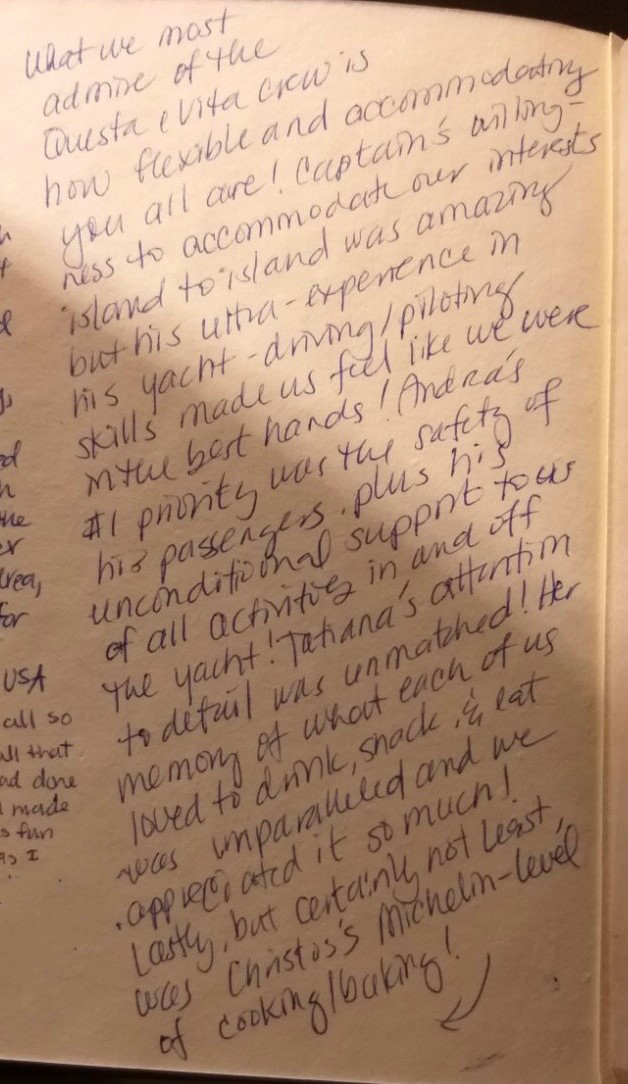 What we most
admire of the
Questa e Vita crew is
how flexible and accommodating
you all are! Captain's willing-
ness to accommodate our interests
island to island was amazing
but his ultra-experience in
his yacht-driving/piloting
skills made us feel like we were
in the best hands! Andrea's
#1 priority was the safety of
his passengers, plus his
unconditional support to us
of all activities in and off
the yacht! Tatiana's attention
to detail was unmatched! Her
memory of what each of us
loved to drink, snack, & eat
was unparalleled and we
appreciated it so much!
Lastly, but certainly not least,
was Christos's Michelin-level
of cooking/baking!
the
area,
for
USA
call so
all that
made
fun
as I